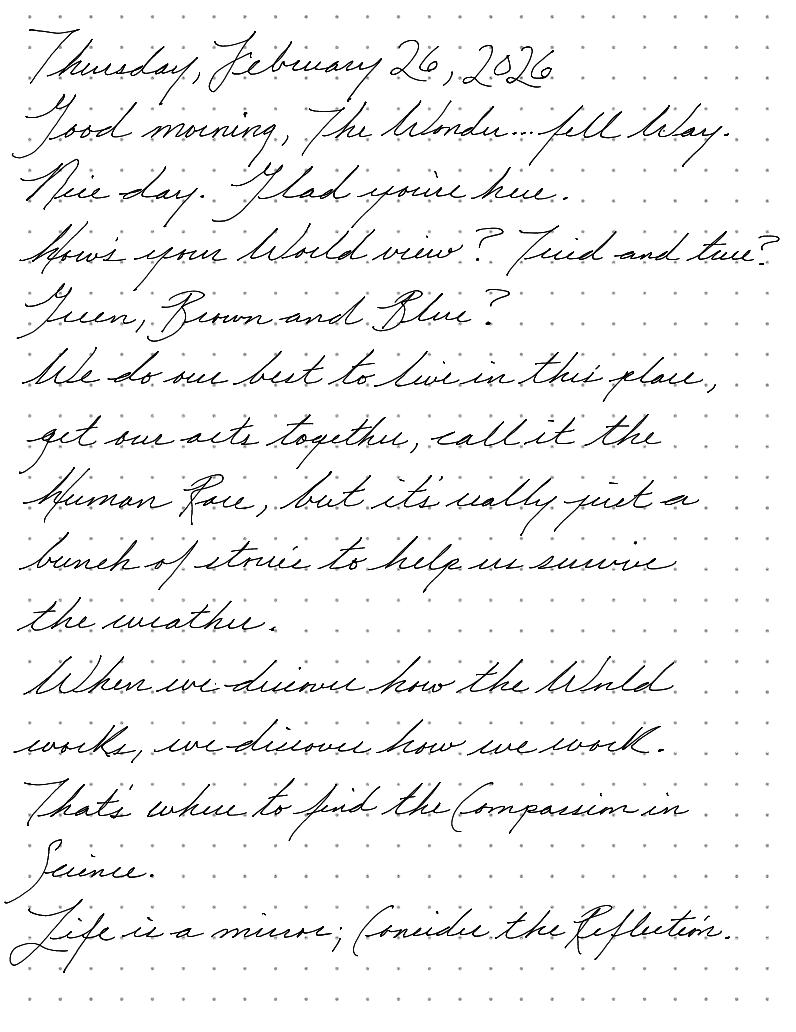 Thursday, February 26, 2026
Good morning, The Wonder... fell Way.
Nice day. Glad you're here.
How's your World view? Tried and true?
Green, Brown and Blue?
We do our best to live in this place,
get our acts together, call it the
Human Race, but it's really just a
bunch of stories to help us survive
the weather.
When we discover how the World
works, we discover how we work.
That's where to find the Compassion in
Science.
Life is a mirror; Consider the Reflection.